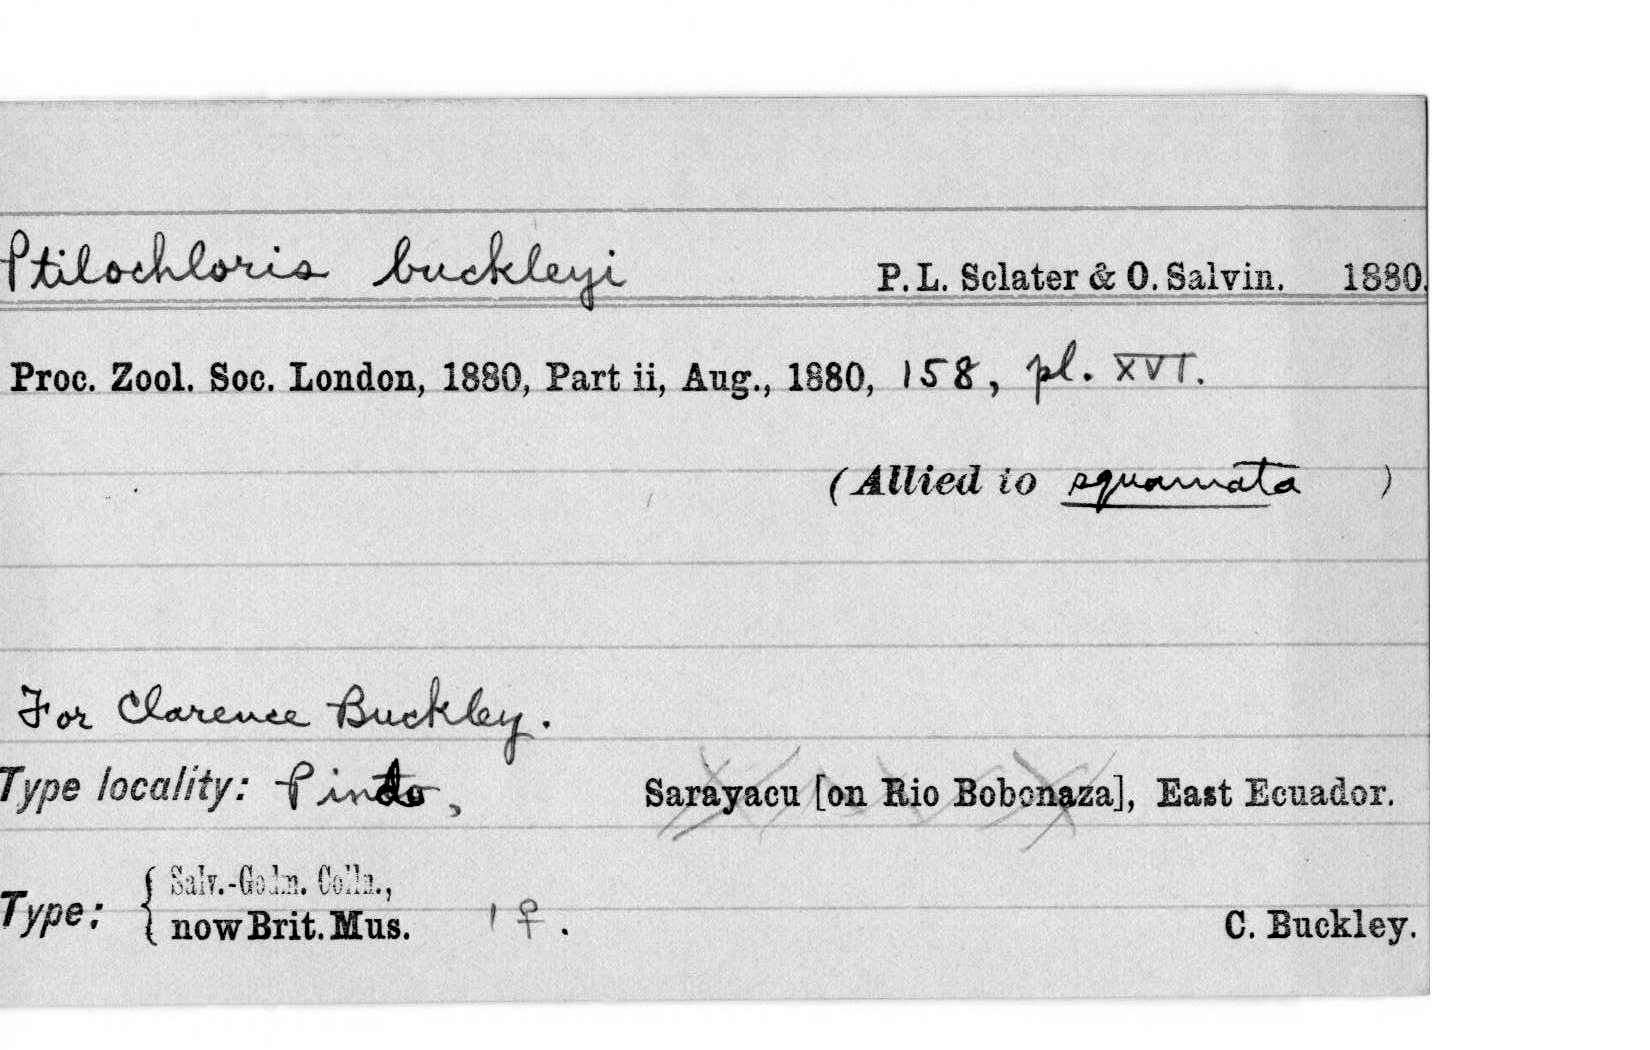 Ptilochloris buckleyi P. L. Sclater & O. Salvin. 1880.
Proc. Zool. Soc. London, 1880, Part ii, Aug., 1880, 158, pl. XVI.
(Allied to squamata )
For Clarence Buckley.
Type locality: Pindo, Sarayacu [on Rio Bobonaza], East Ecuador.
Type: { Salv.-Godm. Colln.,
now Brit. Mus. 1 ♀. C. Buckley.